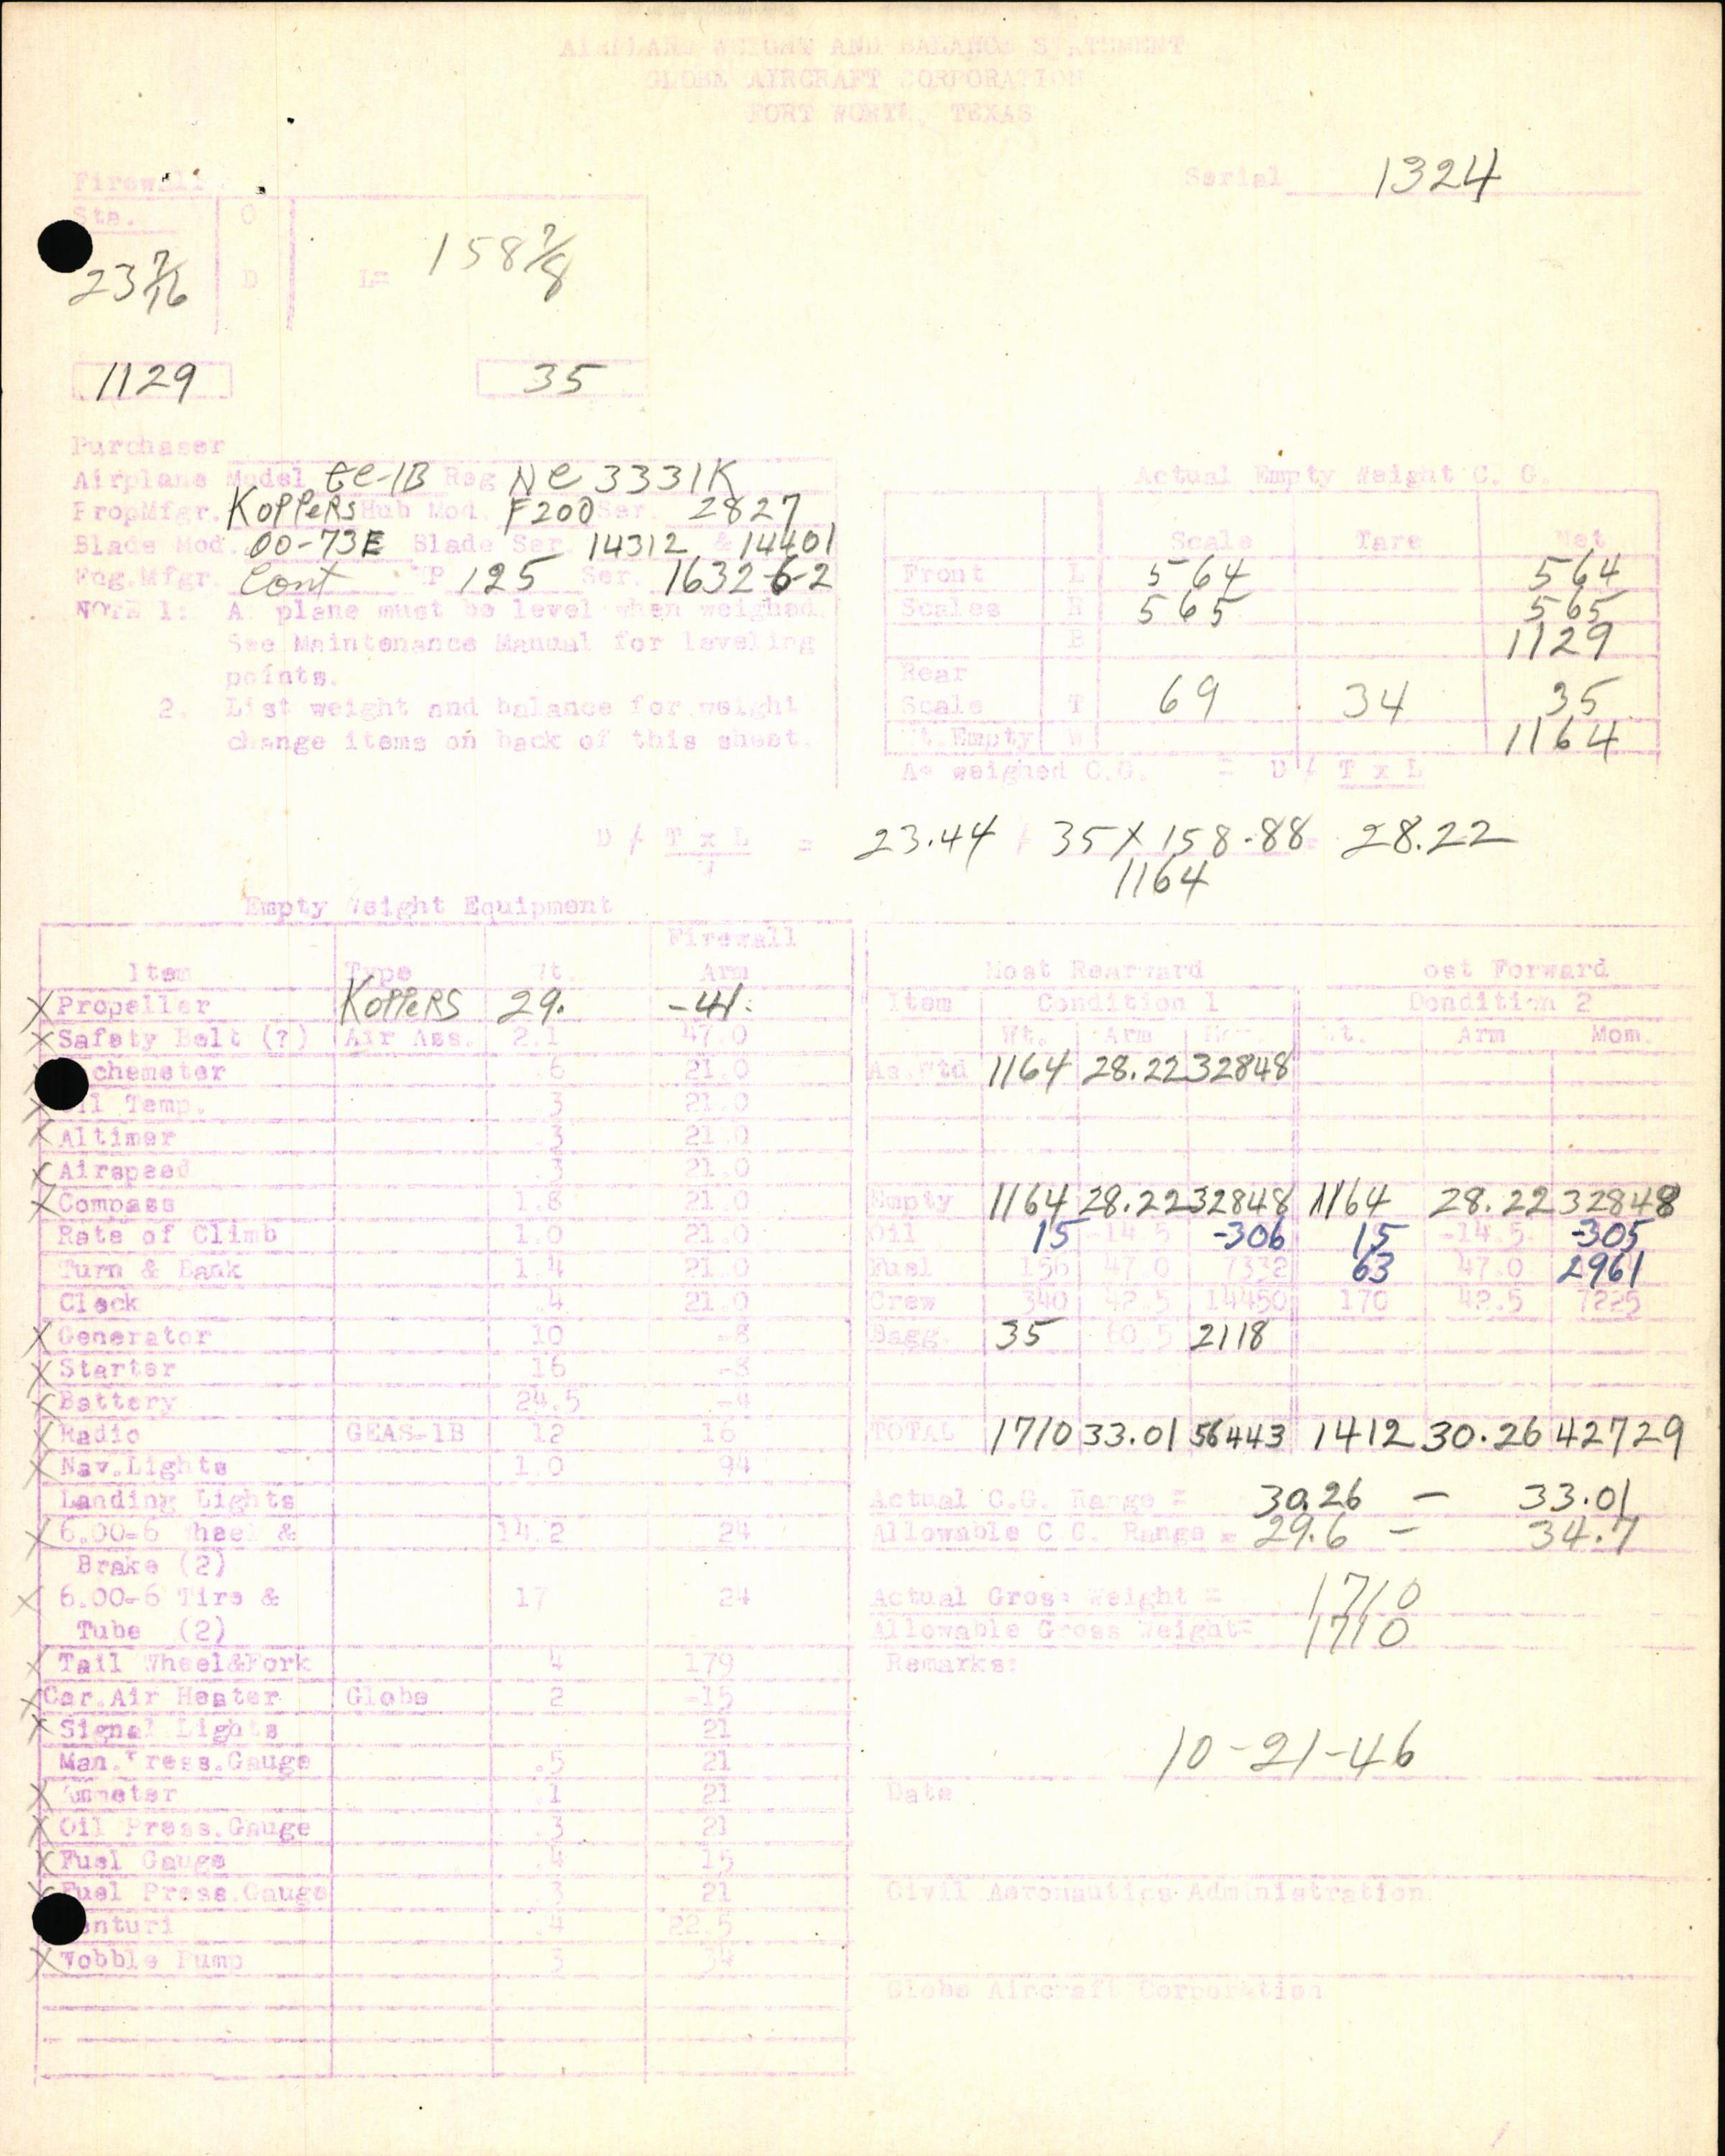 AIRPLANE WEIGHT AND BALANCE STATEMENT
GLOBE AIRCRAFT CORPORATION
FORT WORTH, TEXAS
Serial 1324
Firewall
Sta. O
23 7/16 D L= 158 7/8
1129 35
Purchaser
Airplane Model GC-1B Reg NC 3331K
PropMfgr. KOPPERS Hub Mod. F200 Ser. 2827
Blade Mod. 00-73E Blade Ser. 14312 & 14401
Eng.Mfgr. Cont HP 125 Ser. 1632-6-2
NOTE 1: A plane must be level when weighed.
See Maintenance Manual for leveling
points.
2. List weight and balance for weight
change items on back of this sheet.
Actual Empty Weight C. G.
Scale Tare Net
Front L 564 564
Scales R 565 565
B 1129
Rear
Scale T 69 34 35
Wt.Empty W 1164
As weighed C.G. = D / T x L
D / T x L = 23.44 / 35 X 158.88 = 28.22
W 1164
Empty Weight Equipment
Firewall
Item Type Wt. Arm
X Propeller KOPPERS 29. -41.
X Safety Belt (?) Air Ass. 2.1 47.0
chometer .6 21.0
X Oil Temp. .3 21.0
X Altimer .3 21.0
X Airspeed .3 21.0
X Compass 1.8 21.0
Rate of Climb 1.0 21.0
Turn & Bank 1.4 21.0
Clock .4 21.0
X Generator 10 -8
X Starter 16 -8
X Battery 24.5 -4
X Radio GEAS-1B 12 16
X Nav.Lights 1.0 94
Landing Lights
X 6.00-6 Wheel & 14.2 24
Brake (2)
X 6.00-6 Tire & 17 24
Tube (2)
X Tail Wheel&Fork 4 179
X Car.Air Heater Globe 2 -15
X Signal Lights 21
Man.Press.Gauge .5 21
X Ammeter .1 21
X Oil Press.Gauge .3 21
X Fuel Gauge .4 15
X Fuel Press.Gauge .3 21
enturi .4 22.5
X Wobble Pump 3 34
Most Rearward Most Forward
Item Condition 1 Condition 2
Wt. Arm Mom. Wt. Arm Mom.
As.Wtd 1164 28.22 32848
Empty 1164 28.22 32848 1164 28.22 32848
Oil 15 -14.5 -306 15 -14.5 -305
Fuel 156 47.0 7332 63 47.0 2961
Crew 340 42.5 14450 170 42.5 7225
Bagg. 35 60.5 2118
TOTAL 1710 33.01 56443 1412 30.26 42729
Actual C.G. Range = 30.26 - 33.01
Allowable C.G. Range = 29.6 - 34.7
Actual Gross Weight = 1710
Allowable Gross Weight= 1710
Remarks:
10-21-46
Date
Civil Aeronautics Administration
Globe Aircraft Corporation